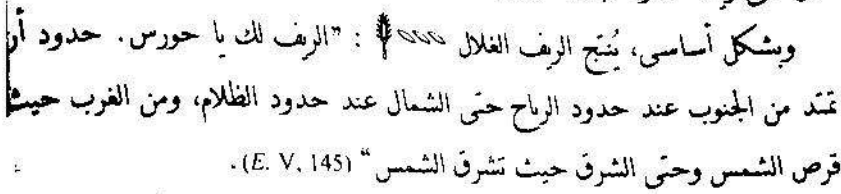 وبشكل أساسى، يُنتج الريف الغلال : "الريف لك يا حورس. حدود أن
تمتد من الجنوب عند حدود الرياح حتى الشمال عند حدود الظلام، ومن الغرب حيث
قرص الشمس وحتى الشرق حيث تشرق الشمس" (E. V, 145).